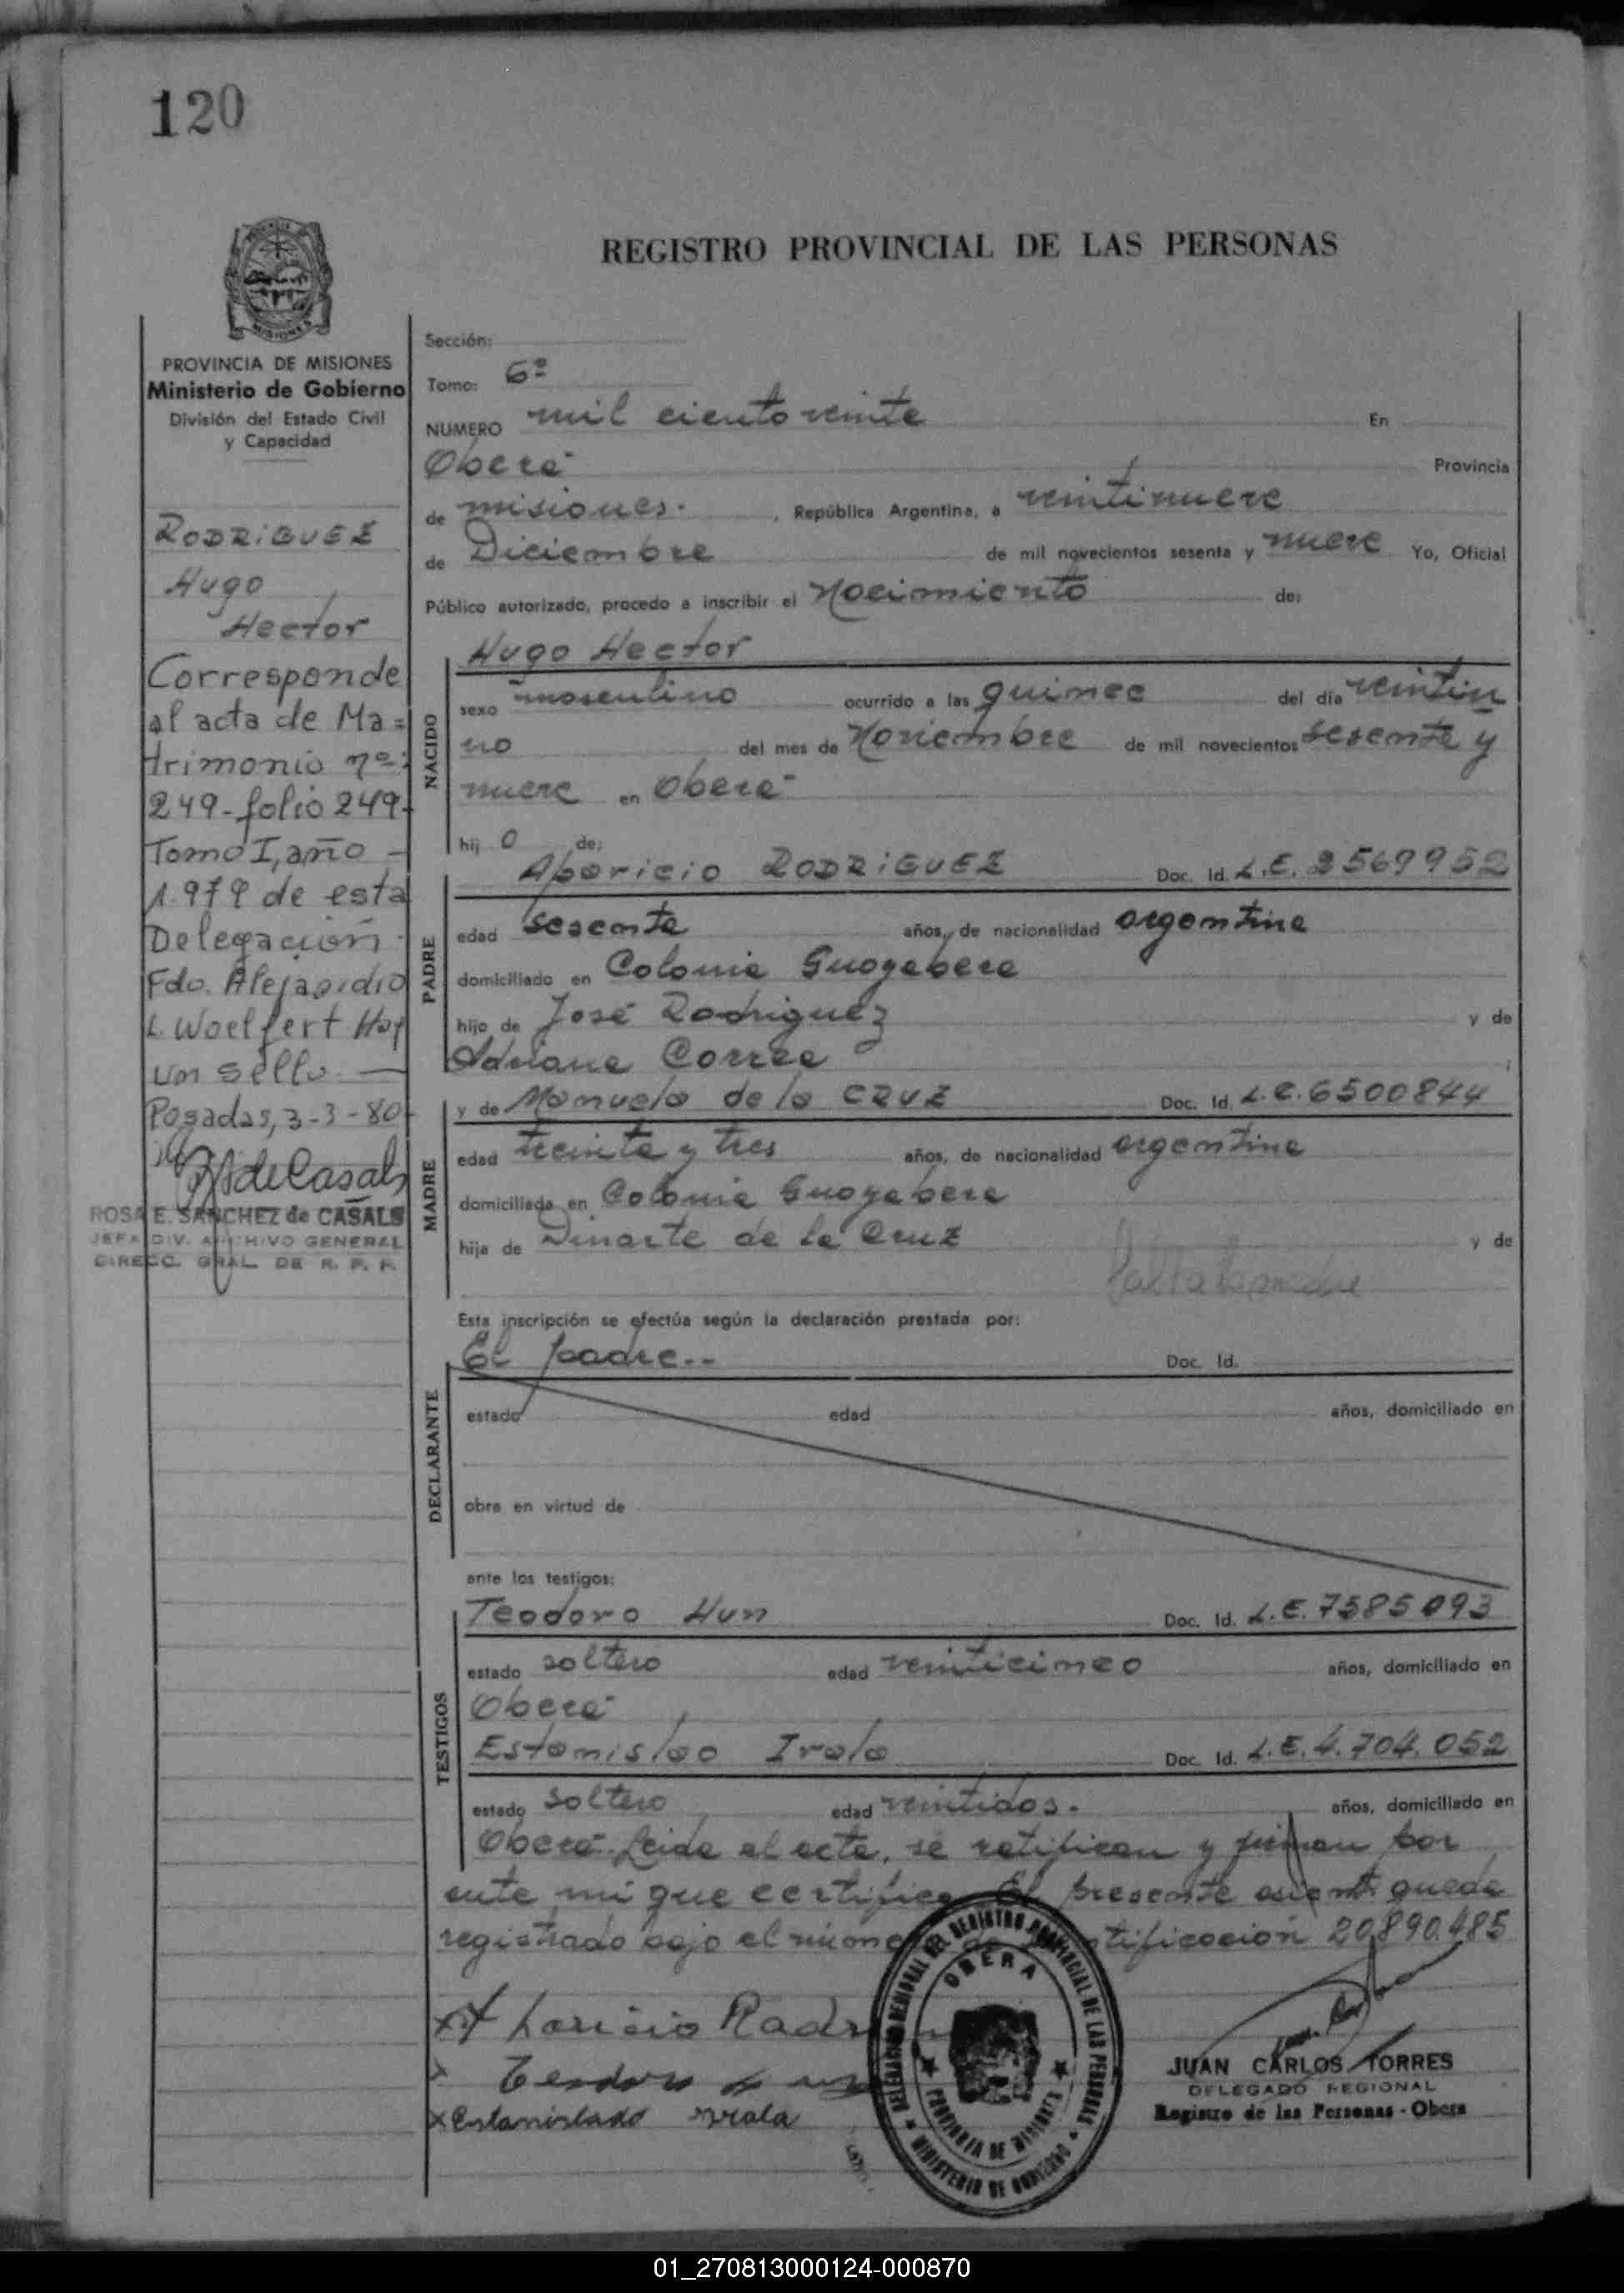 120
REGISTRO PROVINCIAL DE LAS PERSONAS
MISIONES
PROVINCIA DE MISIONES
Ministerio de Gobierno
División del Estado Civil
y Capacidad
RODRIGUEZ
Hugo
Hector
Corresponde
al acta de Ma=
trimonio nº:
249-folio 249-
Tomo I, año -
1.979 de esta
Delegación.
Fdo. Alejandro
L. Woelfert Hay
un sello. —
Posadas, 3-3-80-
RSdeCasals
ROSA E. SANCHEZ de CASALS
JEFA DIV. ARCHIVO GENERAL
DIRECC. GRAL. DE R. P. P.
Sección:
Tomo: 6º
NUMERO mil ciento veinte En
Oberá Provincia
de misiones. , República Argentina, a veintinueve
de Diciembre de mil novecientos sesenta y nueve Yo, Oficial
Público autorizado, procedo a inscribir el Nacimiento de:
Hugo Hector
NACIDO
sexo masculino ocurrido a las quince del día veintiu
no del mes de Noviembre de mil novecientos sesenta y
nueve en Oberá
hij o de:
PADRE
Aparicio RODRIGUEZ Doc. Id. L.E. 2569952
edad sesenta años, de nacionalidad argentina
domiciliado en Colonia Guayabera
hijo de José Rodriguez y de
Adriana Correa ;
MADRE
y de Manuela de la CRUZ Doc. Id. L.C. 6500844
edad treinta y tres años, de nacionalidad argentina
domiciliada en Colonia Guayabera
hija de Dinarte de la Cruz y de
Falta la madre
Esta inscripción se efectúa según la declaración prestada por:
El padre.-- Doc. Id.
DECLARANTE
estado edad años, domiciliado en
obra en virtud de
ante los testigos:
TESTIGOS
Teodoro Hun Doc. Id. L.E. 7585093
estado soltero edad veinticinco años, domiciliado en
Oberá
Estanislao Irala Doc. Id. L.E. 4.704.052
estado soltero edad veintidos. años, domiciliado en
Oberá. Leida el acta, se ratifican y firman por
ante mi que certifico. El presente asiento queda
registrado bajo el número de 20.890.485
x Aparicio Rodr
x Teodoro
x Estanislado Irala
DELEGACION REGIONAL DEL REGISTRO PROVINCIAL DE LAS PERSONAS
OBERA
PROVINCIA DE MISIONES
MINISTERIO DE GOBIERNO
JUAN CARLOS TORRES
DELEGADO REGIONAL
Registro de las Personas - Obera
01_270813000124-000870